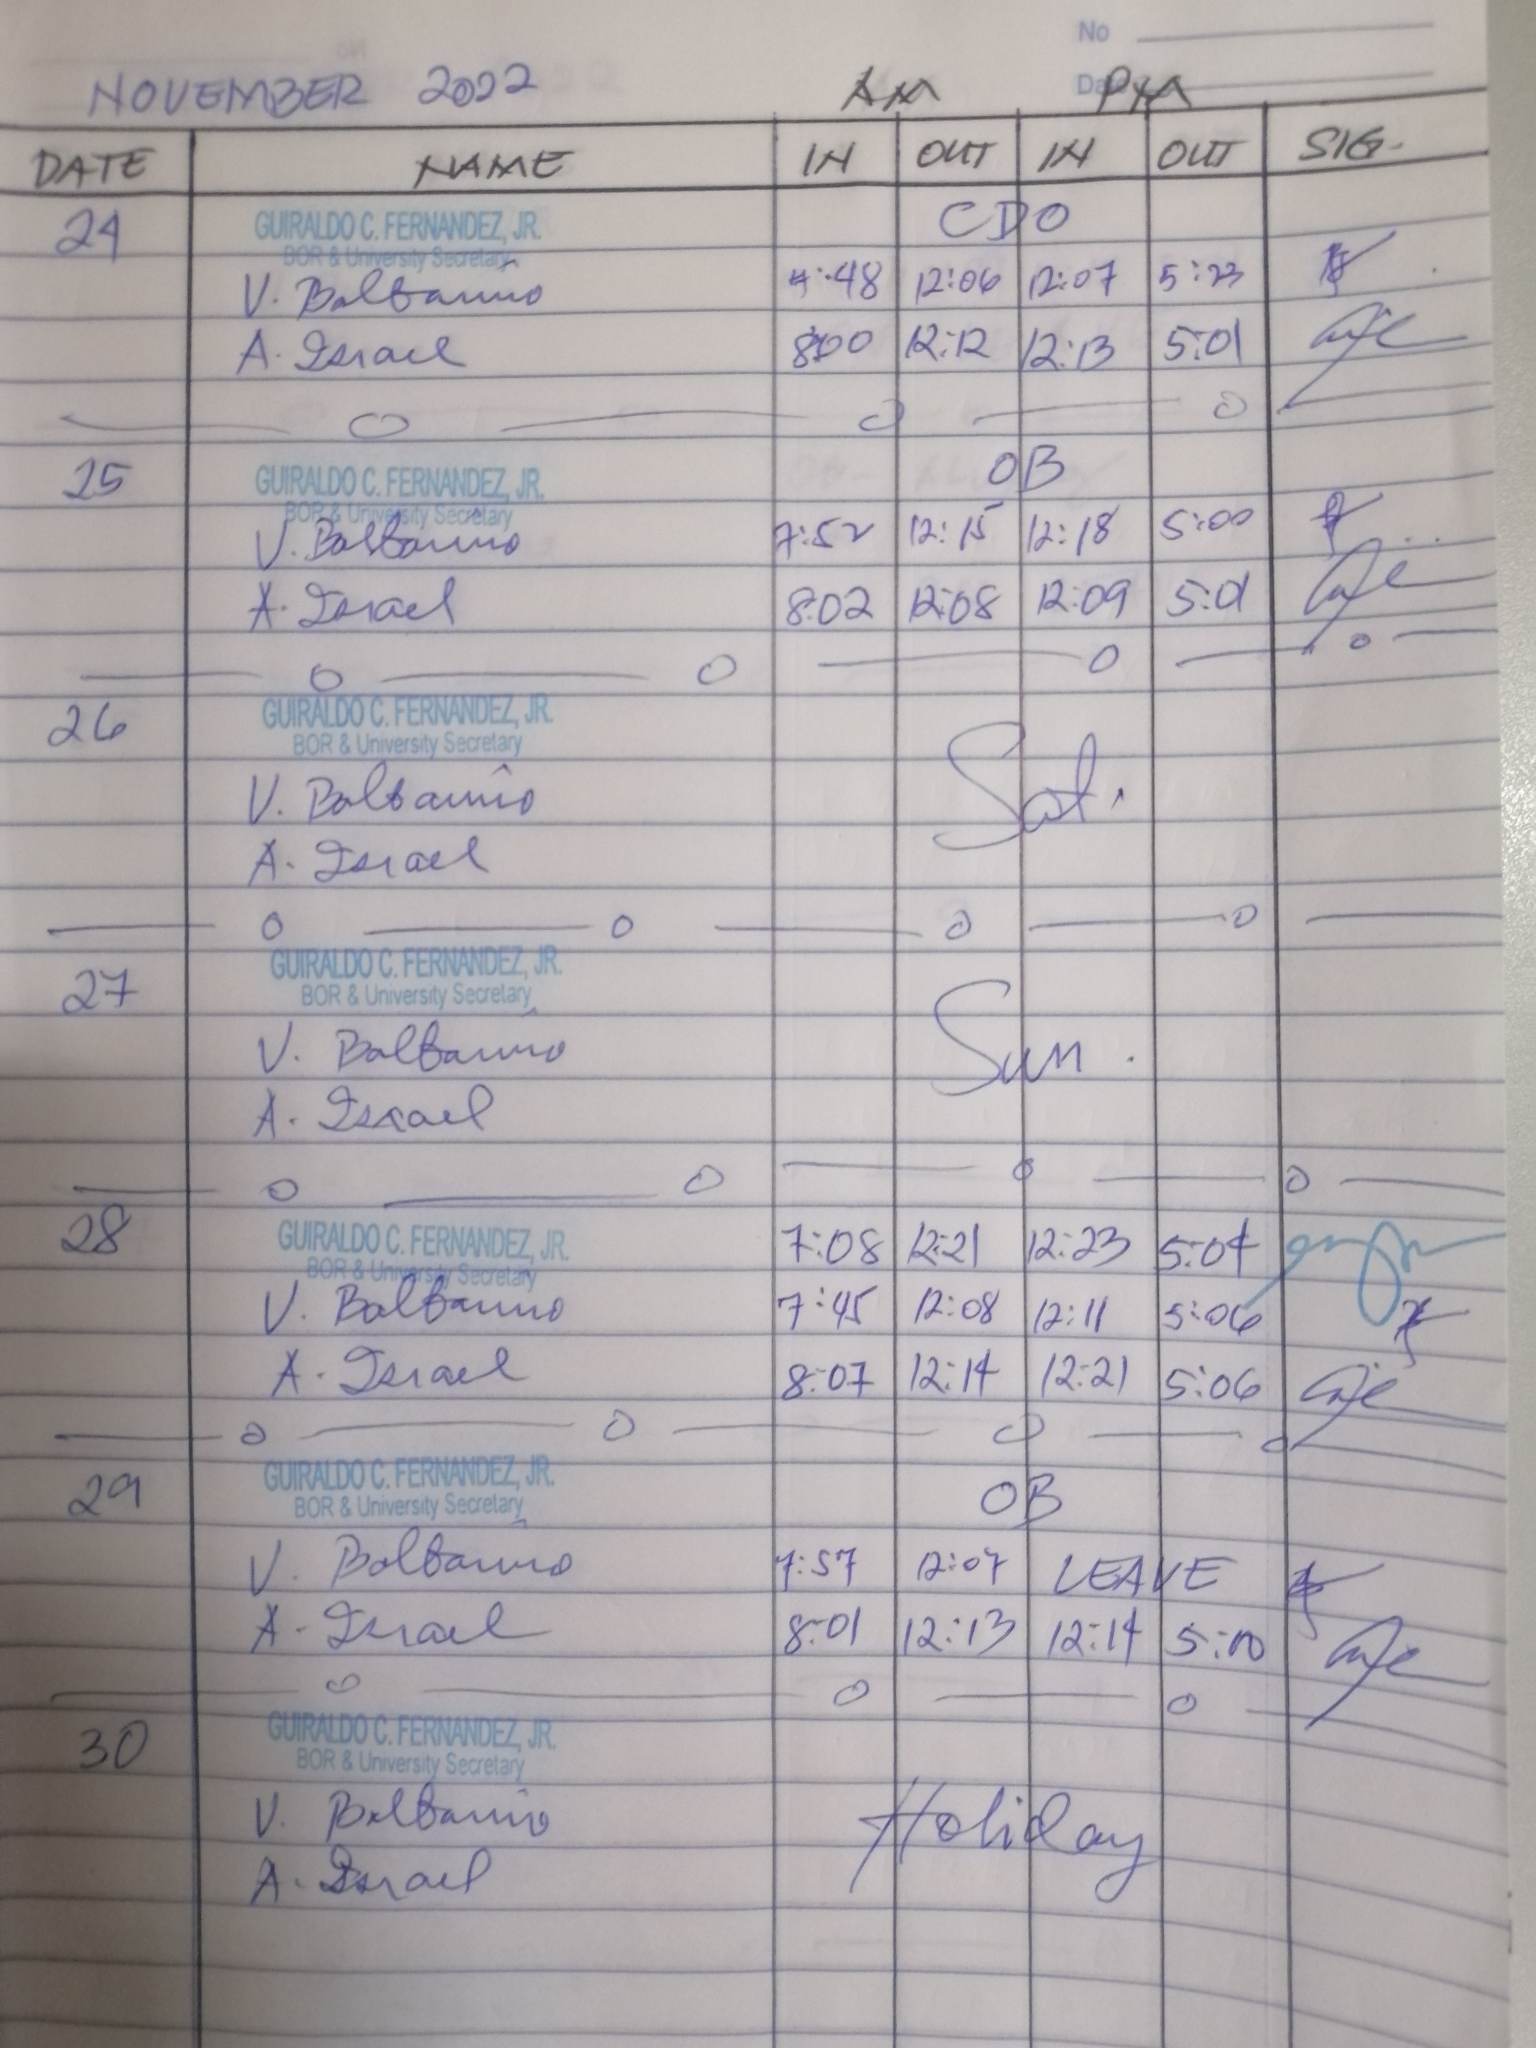 No
NOVEMBER 2022 AM PM
Da
DATE NAME IN OUT IN OUT SIG.
24 GUIRALDO C. FERNANDEZ, JR. CDO
BOR & University Secretary
V. Balbarino 7:48 12:06 12:07 5:23
A. Israel 8:00 12:12 12:13 5:01
25 GUIRALDO C. FERNANDEZ, JR. OB
BOR & University Secretary
V. Balbarino 7:52 12:15 12:18 5:00
A. Israel 8:02 12:08 12:09 5:01
26 GUIRALDO C. FERNANDEZ, JR.
BOR & University Secretary
V. Balbarino Sat.
A. Israel
27 GUIRALDO C. FERNANDEZ, JR.
BOR & University Secretary
V. Balbarino Sun.
A. Israel
28 GUIRALDO C. FERNANDEZ, JR. 7:08 12:21 12:23 5:04
BOR & University Secretary
V. Balbarino 7:45 12:08 12:11 5:06
A. Israel 8:07 12:14 12:21 5:06
29 GUIRALDO C. FERNANDEZ, JR. OB
BOR & University Secretary
V. Balbarino 7:57 12:07 LEAVE
A. Israel 8:01 12:13 12:14 5:00
30 GUIRALDO C. FERNANDEZ, JR.
BOR & University Secretary
V. Balbarino Holiday
A. Israel